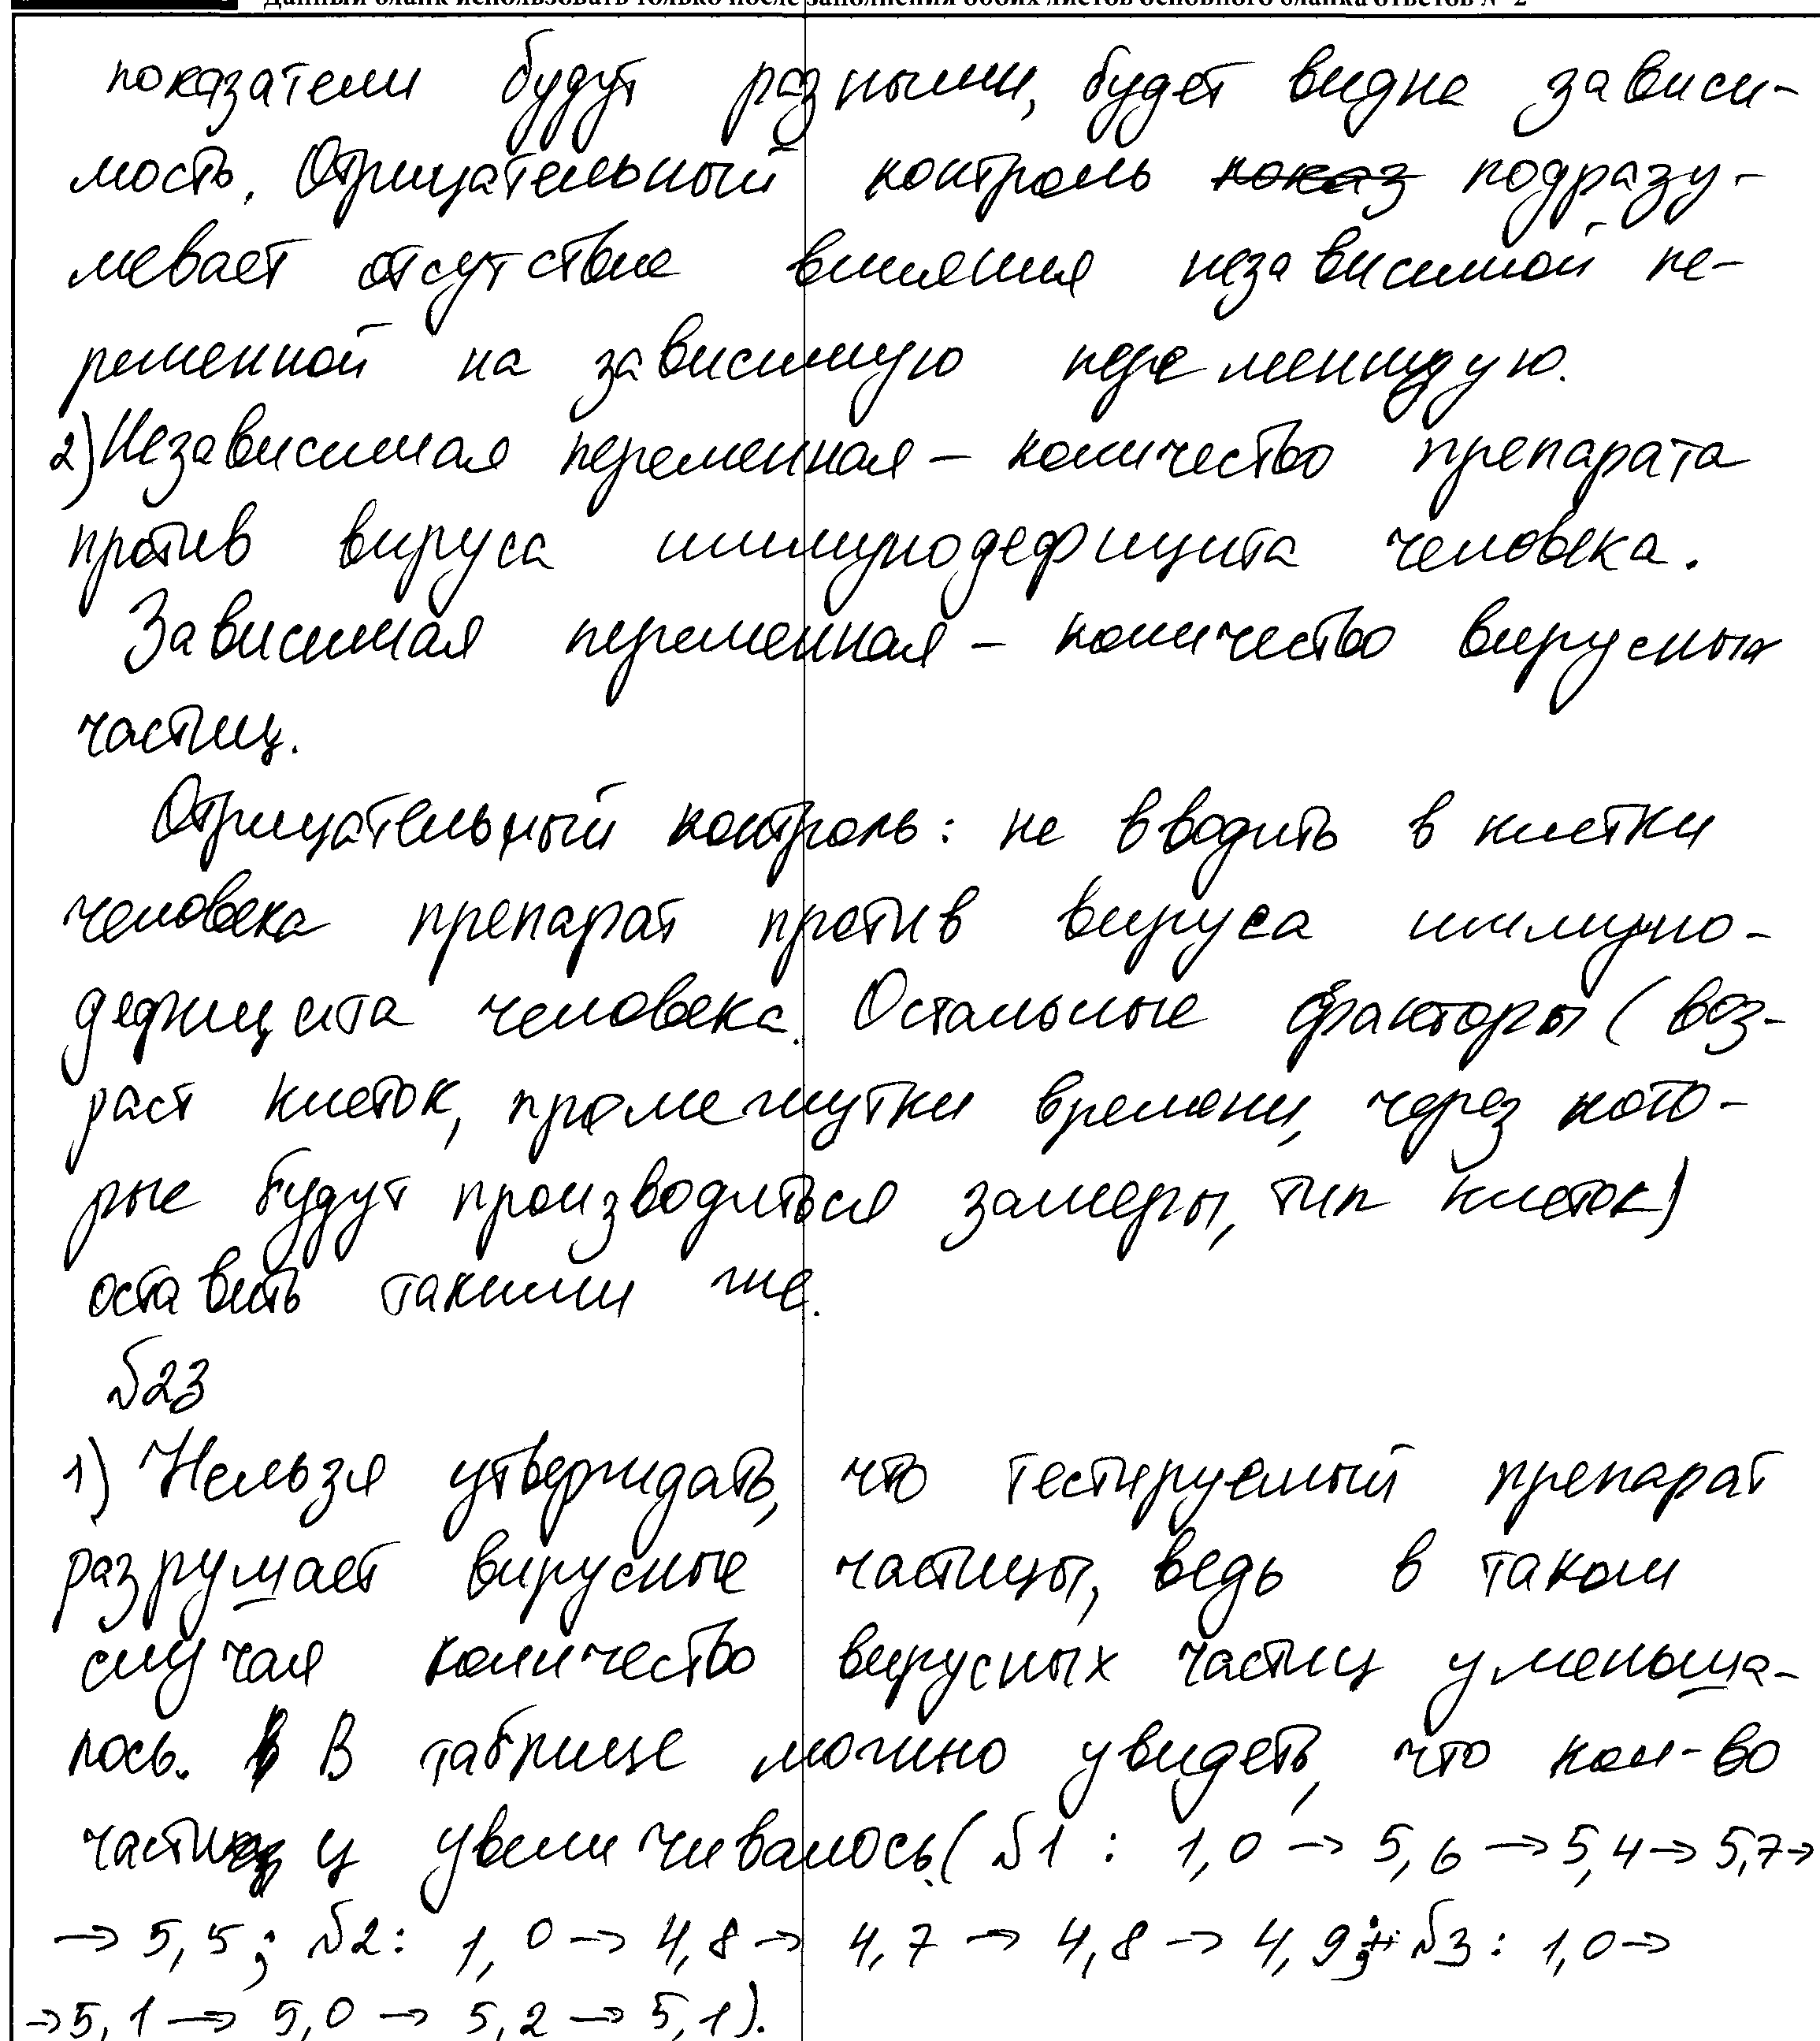 Данный бланк использовать только после заполнения обоих листов основного бланка ответов № 2
показатели будут разными, будет видна зависи-
мость. Отрицательный контроль показ подразу-
мевает отсутствие влияния независимой пе-
ременной на зависимую переменную.
2) Независимая переменная – количество препарата
против вируса иммунодефицита человека.
Зависимая переменная – количество вирусных
частиц.
Отрицательный контроль: не вводить в клетки
человека препарат против вируса иммуно-
дефицита человека. Остальные факторы (воз-
раст клеток, промежутки времени, через кото-
рые будут производиться замеры, тип клеток)
оставить такими же.
№23
1) Нельзя утверждать, что тестируемый препарат
разрушает вирусные частицы, ведь в таком
случая количество вирусных частиц уменьша-
лось. В В таблице можно увидеть, что кол-во
частиц увеличивалось (№1 : 1,0 → 5,6 → 5,4 → 5,7 →
→ 5,5; №2: 1,0 → 4,8 → 4,7 → 4,8 → 4,9; №3: 1,0 →
→ 5,1 → 5,0 → 5,2 → 5,1).